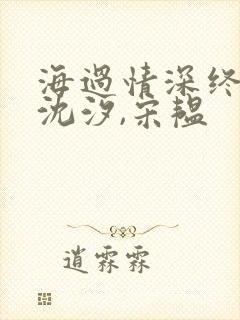 海遇情深终
沈汐,宋韫
逍霖霖